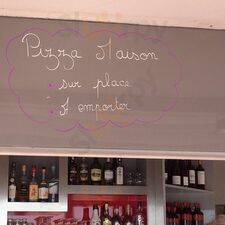 Pizza Maison
• sur place
• A emporter